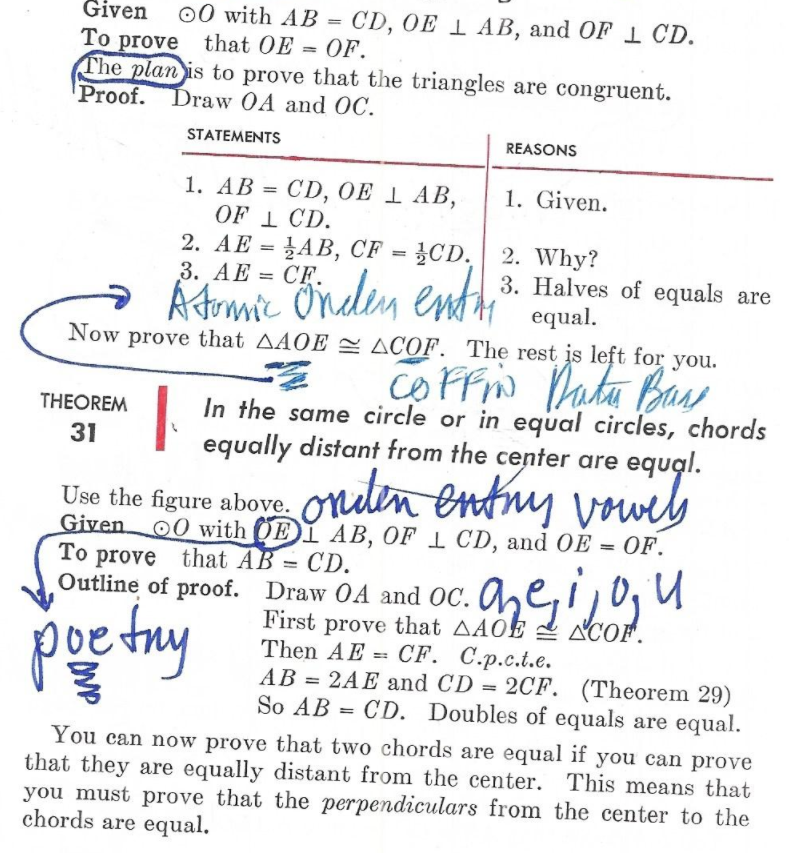 Given ⊙O with AB = CD, OE ⊥ AB, and OF ⊥ CD.
To prove that OE = OF.
The plan is to prove that the triangles are congruent.
Proof. Draw OA and OC.
STATEMENTS
REASONS
1. AB = CD, OE ⊥ AB,
OF ⊥ CD.
1. Given.
2. AE = ½AB, CF = ½CD.
2. Why?
3. AE = CF.
3. Halves of equals are
equal.
Atomic Onden entny
Now prove that △AOE ≅ △COF. The rest is left for you.
COFFIN Data Base
THEOREM
31
In the same circle or in equal circles, chords
equally distant from the center are equal.
Use the figure above.
onden entny vowels
Given ⊙O with OE ⊥ AB, OF ⊥ CD, and OE = OF.
To prove that AB = CD.
Outline of proof. Draw OA and OC.
a, e, i, o, u
First prove that △AOE ≅ △COF.
poetny
Then AE = CF. C.p.c.t.e.
AB = 2AE and CD = 2CF. (Theorem 29)
So AB = CD. Doubles of equals are equal.
You can now prove that two chords are equal if you can prove
that they are equally distant from the center. This means that
you must prove that the perpendiculars from the center to the
chords are equal.